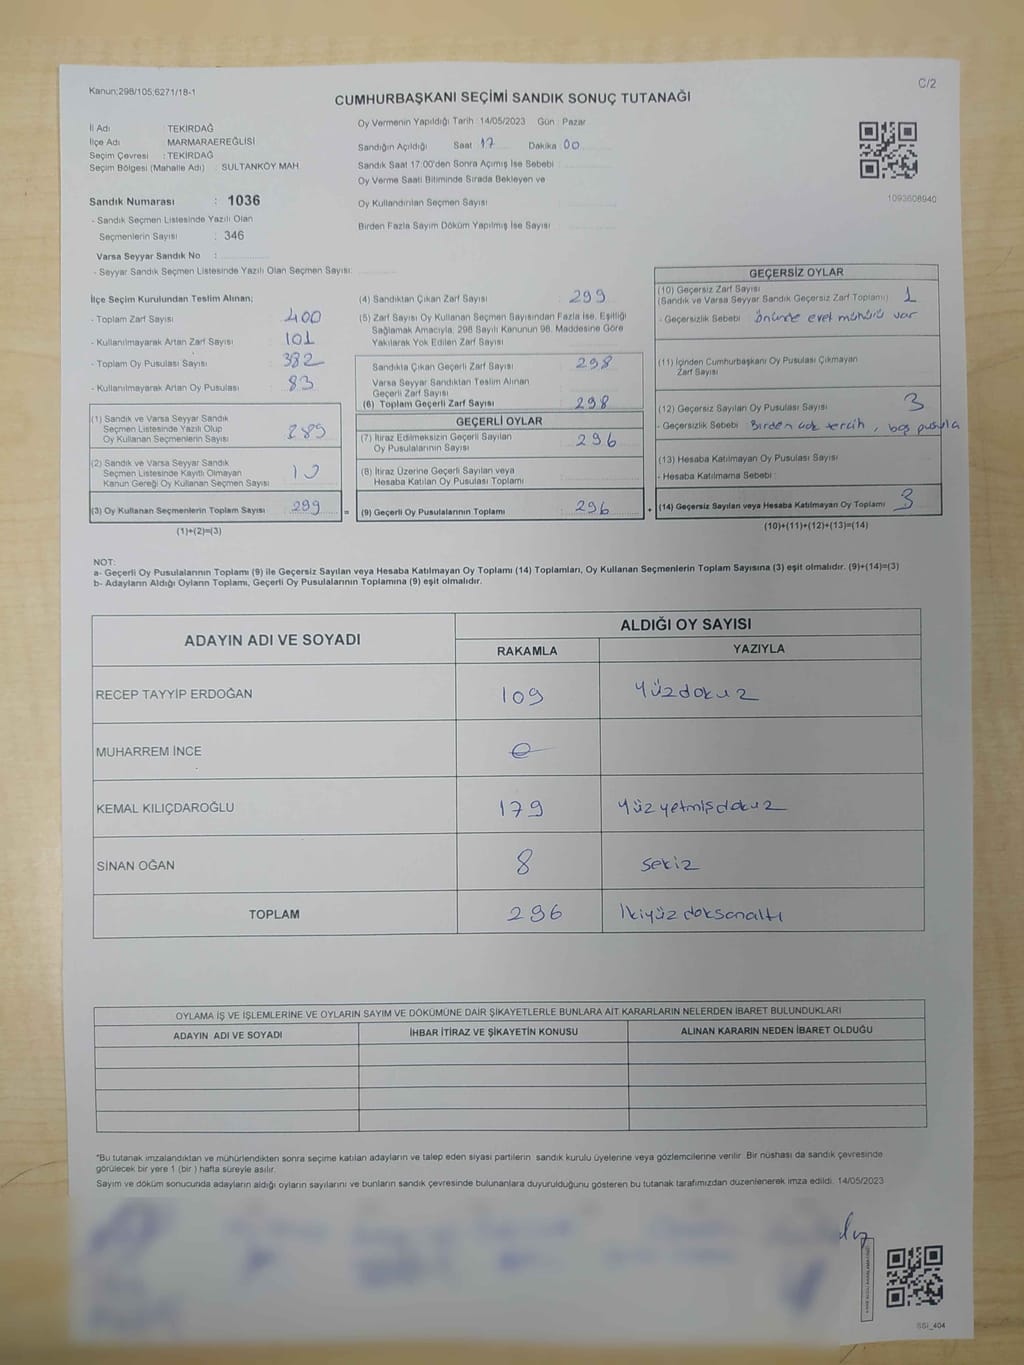 Kanun:298/105;6271/18-1
C/2
CUMHURBAŞKANI SEÇİMİ SANDIK SONUÇ TUTANAĞI
İl Adı : TEKİRDAĞ
İlçe Adı : MARMARAEREĞLİSİ
Seçim Çevresi : TEKİRDAĞ
Seçim Bölgesi (Mahalle Adı) : SULTANKÖY MAH.
Oy Vermenin Yapıldığı Tarih : 14/05/2023 Gün : Pazar
Sandığın Açıldığı Saat 17 Dakika 00
Sandık Saat 17:00'den Sonra Açımış İse Sebebi :
Oy Verme Saati Bitiminde Sırada Bekleyen ve
Oy Kullandırılan Seçmen Sayısı
Birden Fazla Sayım Döküm Yapılmış İse Sayısı
1093608940
Sandık Numarası : 1036
- Sandık Seçmen Listesinde Yazılı Olan
Seçmenlerin Sayısı : 346
Varsa Seyyar Sandık No :
- Seyyar Sandık Seçmen Listesinde Yazılı Olan Seçmen Sayısı:
İlçe Seçim Kurulundan Teslim Alınan;
- Toplam Zarf Sayısı 400
- Kullanılmayarak Artan Zarf Sayısı 101
- Toplam Oy Pusulası Sayısı 382
- Kullanılmayarak Artan Oy Pusulası 83
(1) Sandık ve Varsa Seyyar Sandık
Seçmen Listesinde Yazılı Olup
Oy Kullanan Seçmenlerin Sayısı 289
(2) Sandık ve Varsa Seyyar Sandık
Seçmen Listesinde Kayıtlı Olmayan
Kanun Gereği Oy Kullanan Seçmen Sayısı 10
(3) Oy Kullanan Seçmenlerin Toplam Sayısı 299
(1)+(2)=(3)
=
(4) Sandıktan Çıkan Zarf Sayısı 299
(5) Zarf Sayısı Oy Kullanan Seçmen Sayısından Fazla İse, Eşitliği
Sağlamak Amacıyla, 298 Sayılı Kanunun 98. Maddesine Göre
Yakılarak Yok Edilen Zarf Sayısı
Sandıkta Çıkan Geçerli Zarf Sayısı 298
Varsa Seyyar Sandıktan Teslim Alınan
Geçerli Zarf Sayısı
(6) Toplam Geçerli Zarf Sayısı 298
GEÇERLİ OYLAR
(7) İtiraz Edilmeksizin Geçerli Sayılan
Oy Pusulalarının Sayısı 296
(8) İtiraz Üzerine Geçerli Sayılan veya
Hesaba Katılan Oy Pusulası Toplamı
(9) Geçerli Oy Pusulalarının Toplamı 296
+
GEÇERSİZ OYLAR
(10) Geçersiz Zarf Sayısı
(Sandık ve Varsa Seyyar Sandık Geçersiz Zarf Toplamı) 1
- Geçersizlik Sebebi önünde evet mühürü var
(11) İçinden Cumhurbaşkanı Oy Pusulası Çıkmayan
Zarf Sayısı
(12) Geçersiz Sayılan Oy Pusulası Sayısı 3
- Geçersizlik Sebebi Birden çok tercih, boş pusula
(13) Hesaba Katılmayan Oy Pusulası Sayısı
- Hesaba Katılmama Sebebi :
(14) Geçersiz Sayılan veya Hesaba Katılmayan Oy Toplamı 3
(10)+(11)+(12)+(13)=(14)
NOT:
a- Geçerli Oy Pusulalarının Toplamı (9) ile Geçersiz Sayılan veya Hesaba Katılmayan Oy Toplamı (14) Toplamları, Oy Kullanan Seçmenlerin Toplam Sayısına (3) eşit olmalıdır. (9)+(14)=(3)
b- Adayların Aldığı Oyların Toplamı, Geçerli Oy Pusulalarının Toplamına (9) eşit olmalıdır.
ADAYIN ADI VE SOYADI ALDIĞI OY SAYISI
RAKAMLA YAZIYLA
RECEP TAYYİP ERDOĞAN 109 Yüzdokuz
MUHARREM İNCE
KEMAL KILIÇDAROĞLU 179 Yüzyetmişdokuz
SİNAN OĞAN 8 Sekiz
TOPLAM 296 İkiyüzdoksanaltı
OYLAMA İŞ VE İŞLEMLERİNE VE OYLARIN SAYIM VE DÖKÜMÜNE DAİR ŞİKAYETLERLE BUNLARA AİT KARARLARIN NELERDEN İBARET BULUNDUKLARI
ADAYIN ADI VE SOYADI İHBAR İTİRAZ VE ŞİKAYETİN KONUSU ALINAN KARARIN NEDEN İBARET OLDUĞU
*Bu tutanak imzalandıktan ve mühürlendikten sonra seçime katılan adayların ve talep eden siyasi partilerin sandık kurulu üyelerine veya gözlemcilerine verilir. Bir nüshası da sandık çevresinde
görülecek bir yere 1 (bir ) hafta süreyle asılır.
Sayım ve döküm sonucunda adayların aldığı oyların sayılarını ve bunların sandık çevresinde bulunanlara duyurulduğunu gösteren bu tutanak tarafımızdan düzenlenerek imza edildi. 14/05/2023
SSI_404